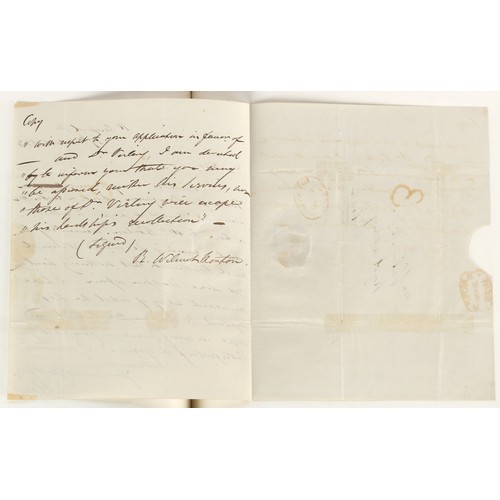 Copy
"With respect to your application in favor of
— and Dr Verling I am directed
to be inform you that you may
"be assured, neither his services, nor
"those of Dr Verling will escape
"his Lordship's recollection" —
(Signed)
R. Wilmot Horton
3